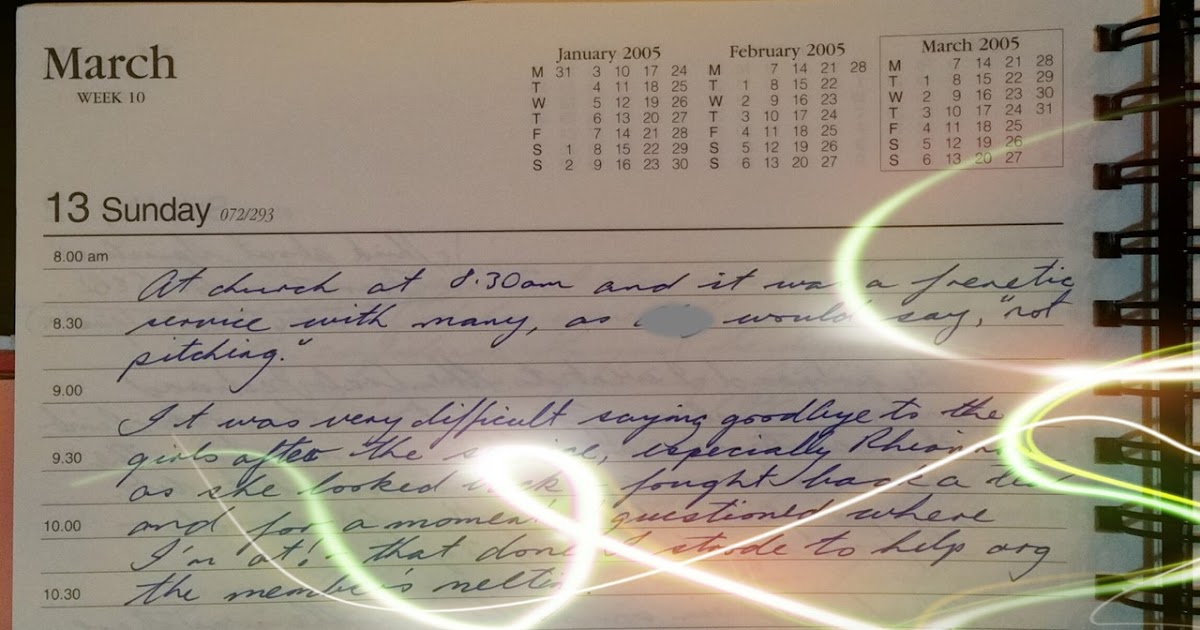 March
WEEK 10
January 2005
M 31 3 10 17 24
T 4 11 18 25
W 5 12 19 26
T 6 13 20 27
F 7 14 21 28
S 1 8 15 22 29
S 2 9 16 23 30
February 2005
M 7 14 21 28
T 1 8 15 22
W 2 9 16 23
T 3 10 17 24
F 4 11 18 25
S 5 12 19 26
S 6 13 20 27
March 2005
M 7 14 21 28
T 1 8 15 22 29
W 2 9 16 23 30
T 3 10 17 24 31
F 4 11 18 25
S 5 12 19 26
S 6 13 20 27
13 Sunday 072/293
8.00 am
At church at 8.30am and it was a frenetic
8.30
service with many, as would say, "not
pitching."
9.00
It was very difficult saying goodbye to the
9.30
girls after the service, especially
as she looked back fought back a
10.00
and for a moment questioned where
I'm at! - that done I strode to help org
10.30
the member's